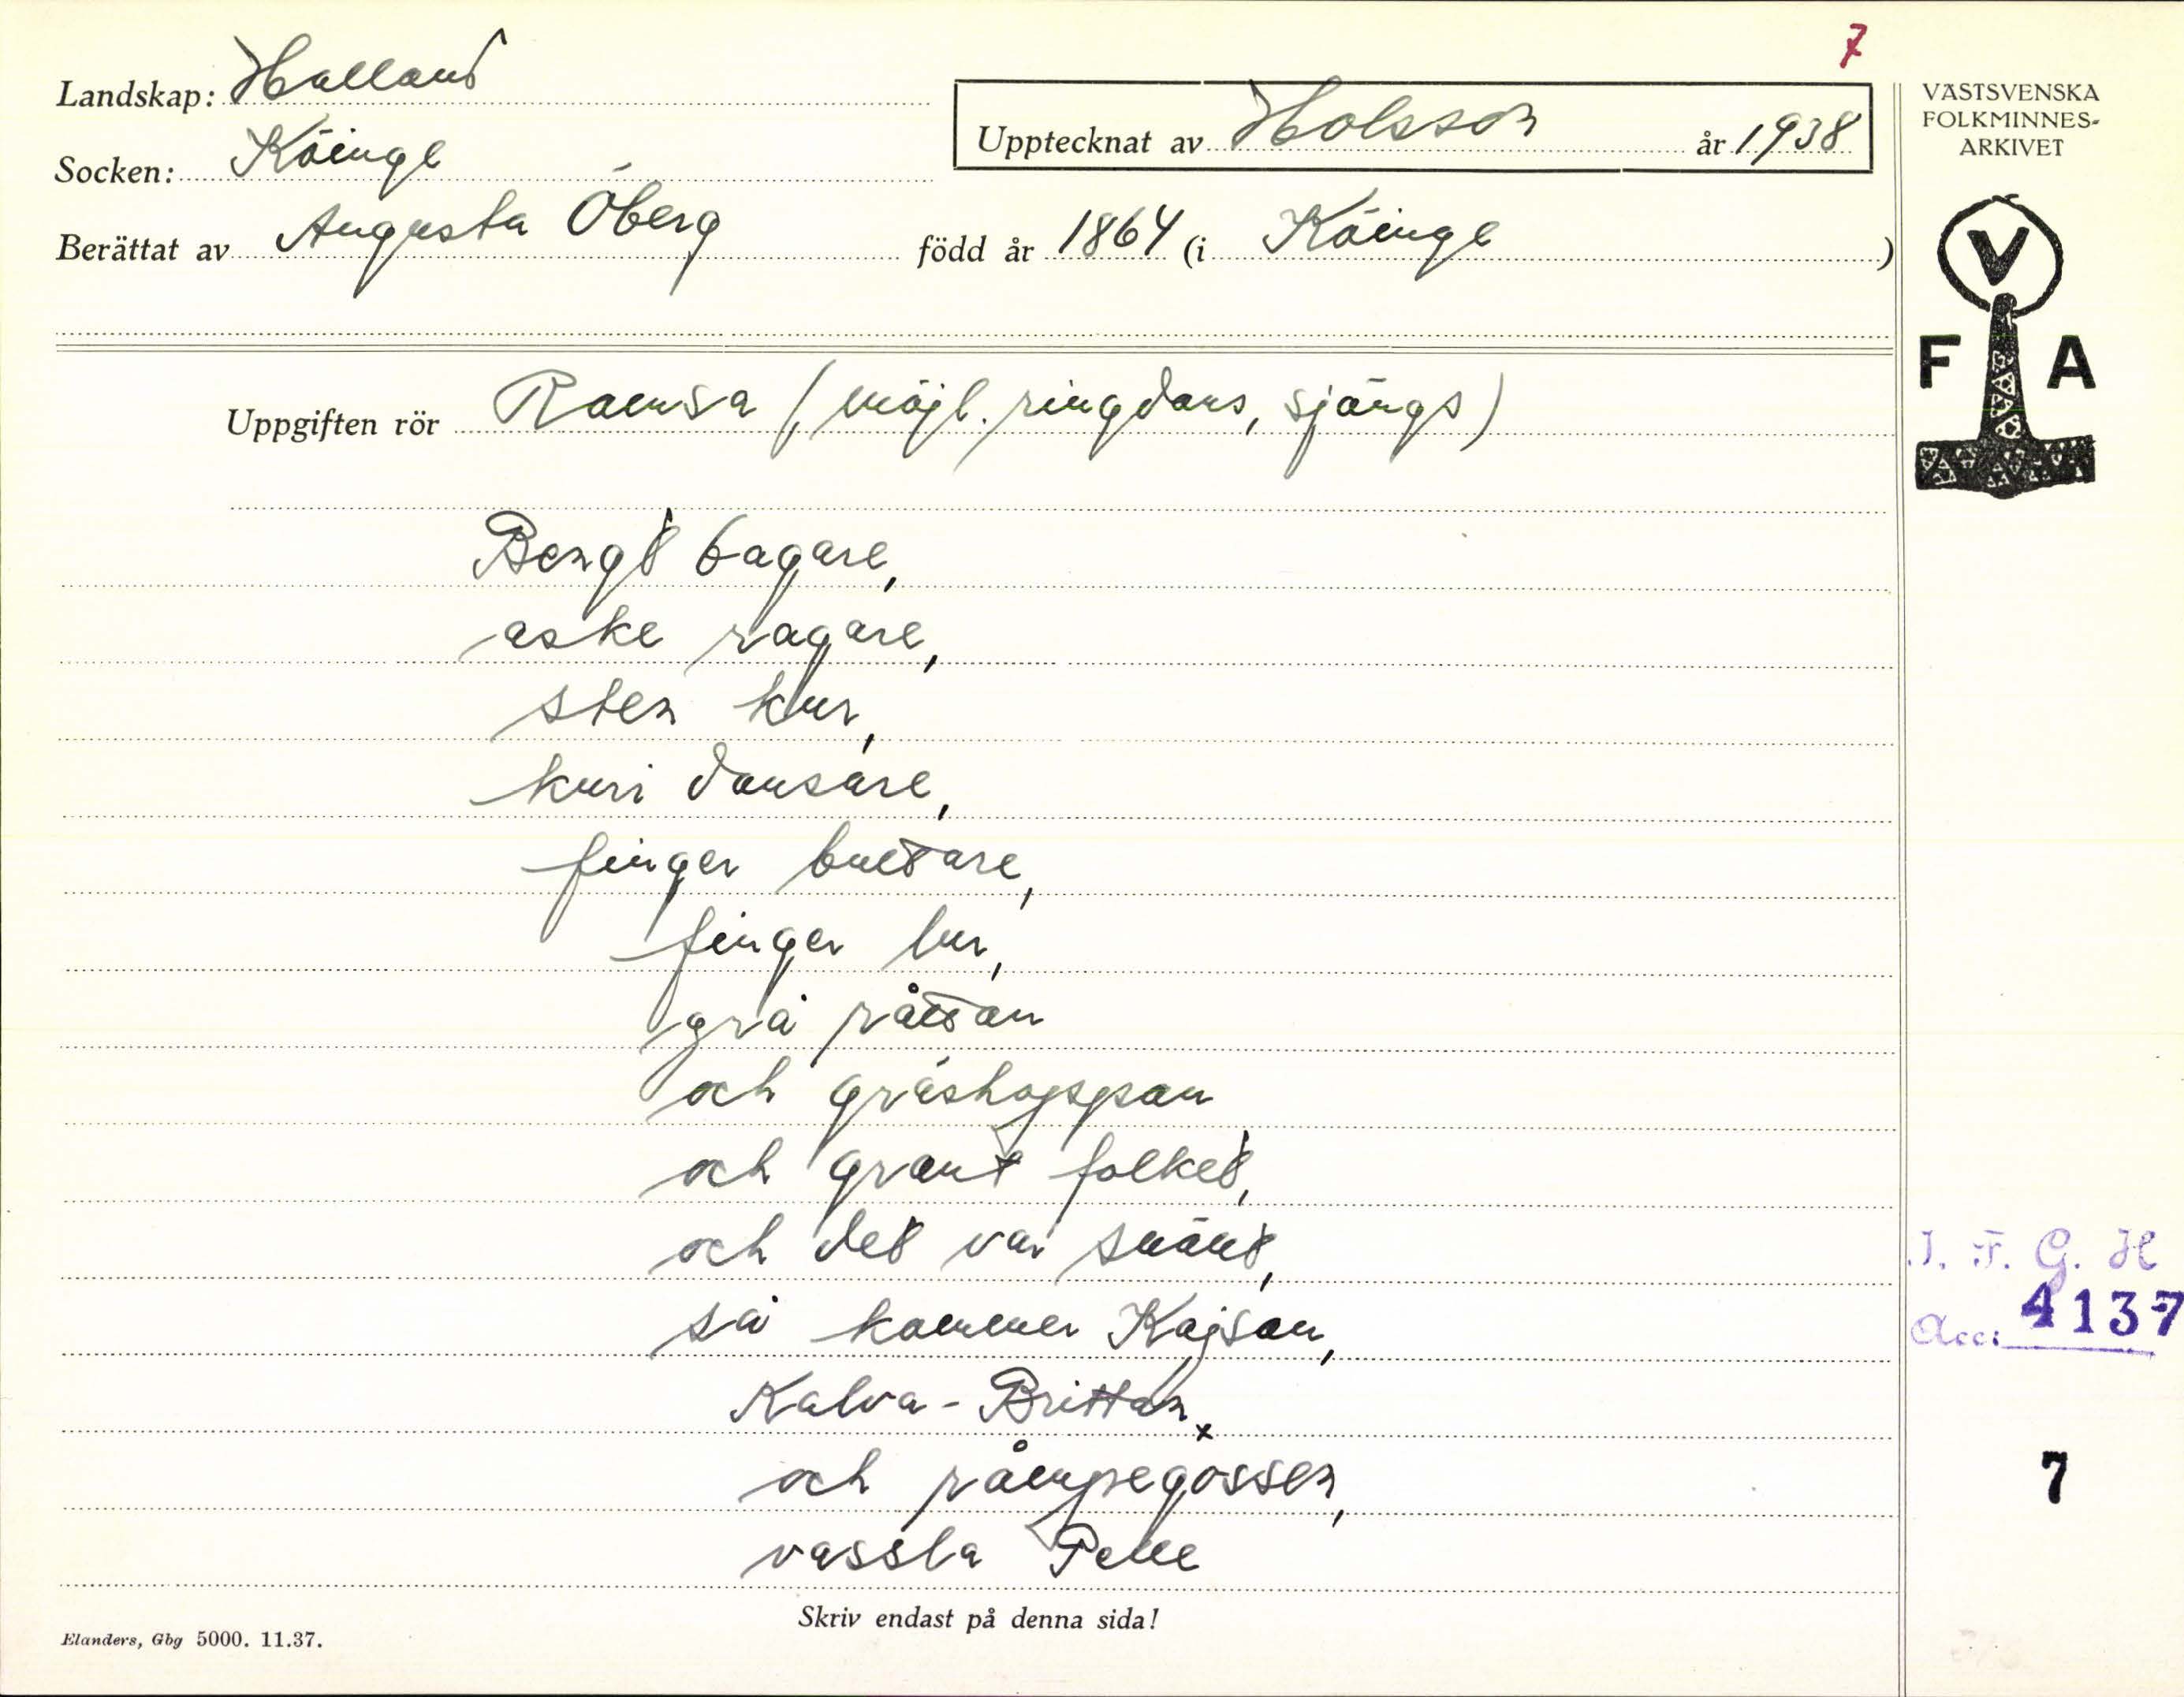 7
Landskap: Halland
Socken: Köinge
Upptecknat av Holsson år 1938
Berättat av Augusta Öberg född år 1864 (i Köinge )
VÄSTSVENSKA
FOLKMINNES-
ARKIVET
V
F A
Uppgiften rör Ramsa (, möjl. ringdans, sjöngs)
Bengt bagare,
aske ragare,
sten kur,
kuri dansare,
finger buttare,
finger lur,
grå råttan
och gräshoppan
och grant folket,
och det var snönt,
så kommer Kajsan,
Kalva-Brittan x
och råmpegossen,
vassla Pelle
I. F. G. H
Acc: 4137
7
Skriv endast på denna sida!
Elanders, Gbg 5000. 11.37.